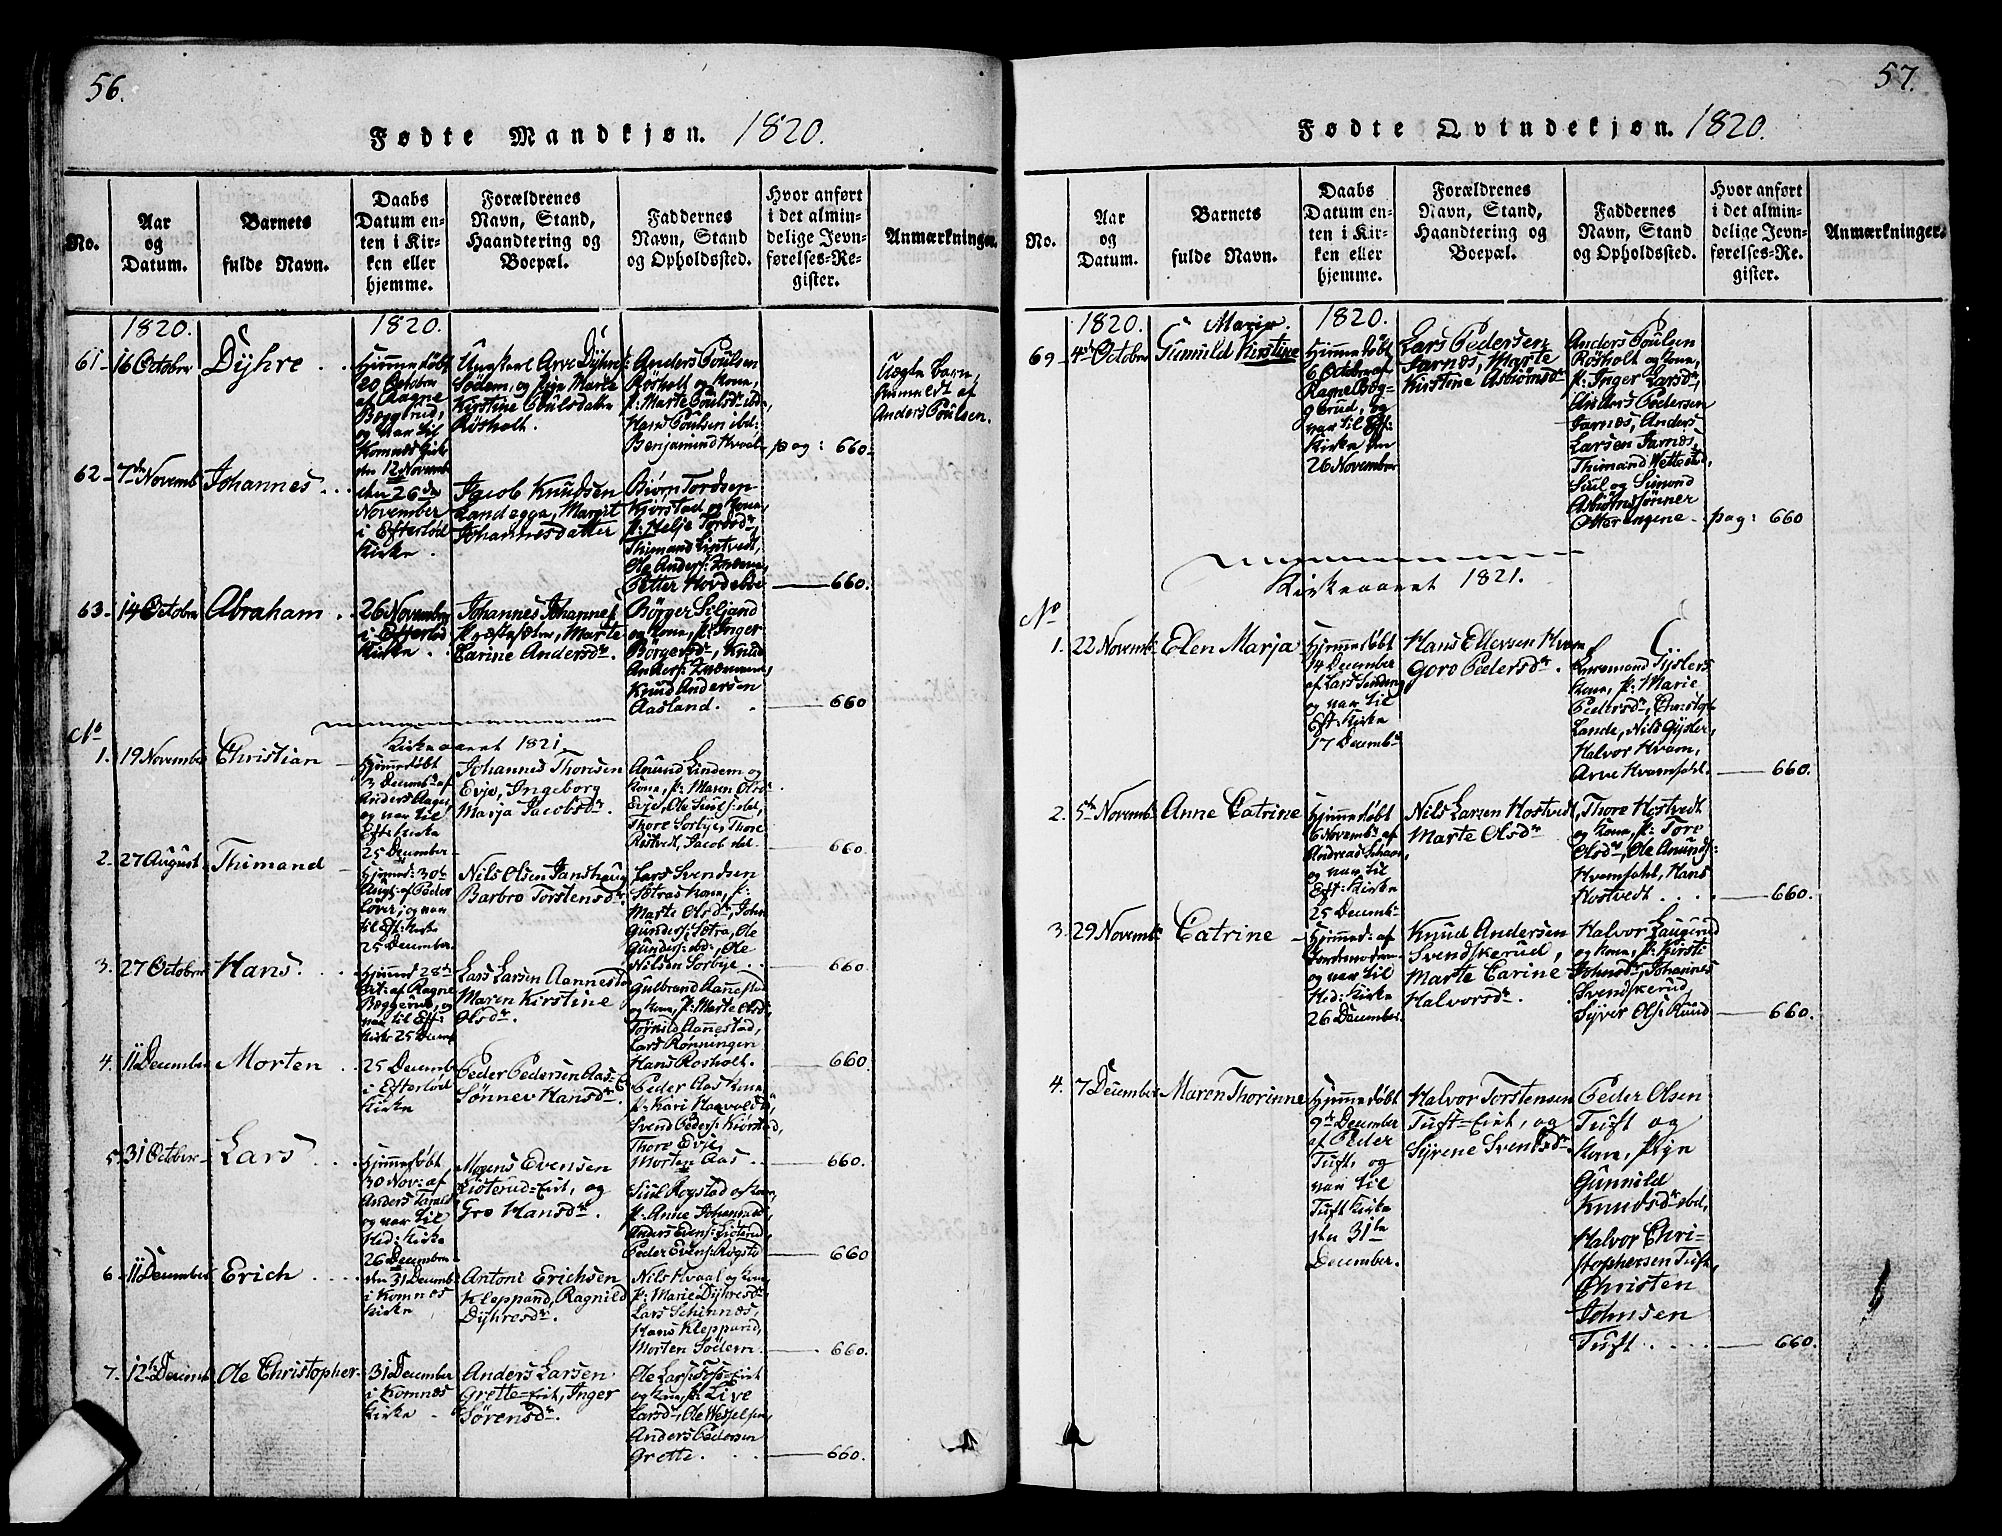 56.
Fødte Mandkjøn. 1820.
No.
Aar
og
Datum.
Barnets
fulde Navn.
Daabs
Datum en-
ten i Kir-
ken eller
hjemme.
Forældrenes
Navn, Stand,
Haandtering og
Boepæl.
Faddernes
Navn, Stand
og Opholdssted.
Hvor anført
i det almin-
delige Jevn-
førelses-Re-
gister.
Anmærkninger.
1820.
1820.
61
16 October
Dyhre
Hjemmedøbt
20 October
af Ragne
Bæggerud,
og var til
Komnes Kirke
den 12 Novemb
Ungkarl Arve Dyhres:
Sødem, og Pige Marte
Kirstine Poulsdatter
Røsholt.
Anders Poulsen
Røsholt og Kone,
p: Marte Poulsdr ibd,
Hans Poulsen ibd:
Benjamin Hvaal
pag: 660.
Uægte Barn,
Anmeldt af
Anders Poulsen.
62
7de Novemb
Johannes
den 26de
November
i Efterlød
Kirke.
Jacob Knudsen
Landegga, Margit
Johannesdatter
Biørn Tordsen
Kjørstad og Kone,
p: Helje Torbsdr,
Thimand Lintvedt,
Ole Anders:
Petter Hovdebøe
660.
63
14 October
Abraham
26 November
i Efterlød
Kirke.
Johannes Johannes
Præstesæter, Marte
Carine Andersdr.
Børger Seljand
og Kone, p: Inger
Borgersdr, Knud
Anders:
Knud Andersen
Aasland.
660
No
Kirkeaaret 1821
1.
19 November
Christian
Hjemmedøbt
3 Decembr af
Anders Aaget,
og var til
Eft: Kirke
25 December
Johannes Thoresen
Evje, Ingeborg
Marja Jacobsdr.
Anund Lindem og
Kone, p: Maren Olsdr
Evje, Ole Siuls: ibd,
Thore Sorbye, Thore
Rostvedt, Jacob ibd.
660.
2.
27 August
Thimand
Hjemmed: 30te
Aug: af Peder
Løver; og var
til Eft: Kirke
25 December
Nils Olsen Janshaug
Barbro Torstensdr.
Lars Svendsen
Søtras Kone, p:
Marte Olsdr, John
Gunders: Søtra, Ole
Gunders: ibd:, Ole
Nilsen Sorbye
660.
3.
27 October
Hans
Hjemmed 28de
Oct: af Ragne
Bæggerud, og
var til Eft:
Kirke 25 Decemb
Lars Larsen Aannestad
Maren Kirstine
Olsdr.
Gulbrand Aannestad
og Kone, p: Marte Olsdr
Tornild Aannestad,
Lars Rønningen
Hans Rosholt
660
4.
11 December
Morten
25 Decemb
i Efterlød
Kirke
Peder Pedersen Aas-E
Sønnev Hansdr.
Peder Aas Kone
p: Kari Haavoldsdr
Svend Peders: Kiørstad,
Thore Evje,
Morten Aas
660.
5
31 October
Lars
Hjemmedøbt
30 Nov: af
Anders Tarald
og var til
Hed: Kirke
26 December
Mogens Evensen
Liøterud-Eiet, og
Gro Hansdr.
Siul Rogstad og Kone,
p: Anne Johansdr
Anders Evens: Liøterud
Peder Evens: Rogstad
660
6
11 December
Erich
den 31 Decemb
i Komnes
Kirke
Antoni Erichsen
Kleppand, Ragnild
Dyhresdr.
Nils Hvaal og Kone,
p: Marie Dyhresdr
Lars Schinnes,
Hans Kleppand,
Morten Sødem.
660.
7.
12te Decemb
Ole Christopher
31 December
i Komnes
Kirke
Anders Larsen
Grette-Eiet, Inger
Sørensdr.
Ole Lars: Foss-Eiet
og Kone, p: Live
Larsdr, Ole Wesselsen,
Anders Pedersen
Grette.
660.
57.
Fødte Qvindekjøn. 1820.
No.
Aar
og
Datum.
Barnets
fulde Navn.
Daabs
Datum en-
ten i Kir-
ken eller
hjemme.
Forældrenes
Navn, Stand,
Haandtering og
Boepæl.
Faddernes
Navn, Stand
og Opholdssted.
Hvor anført
i det almin-
delige Jevn-
førelses-Re-
gister.
Anmærkninger.
1820.
1820.
69
4de October
Maria.
Gunnild Kirstine
Hjemmedøbt
6 October af
Ragne Bæg-
gerud, og
var til Eft:
Kirke den
26 November
Lars Pedersen
Jarnæs, Marte
Kirstine Asbiørnsdr
Anders Poulsen
Røsholt og Kone,
p: Inger Larsdr,
Anders Pedersen
Jarnæs, Anders
Larsen Jarnæs,
Thimand Wettestø,
Siul og Simond
Asbiørnsønner
Otterengene
pag: 660
Kirkeaaret 1821.
No
1.
22 Novembr
Elen Marja
Hjemmedøbt
14 December
af Lars Linden,
og var til
Eft: Kirke
17 Decembr
Hans Ellefsen Hvam
Goro Pedersdr.
Lensmand Gislers
Kone, p: Marie
Pedersdr, Christoph
Lande, Nils Gisler,
Halvor Hvam,
Arve Hvamsahl
660.
2.
5te Novembr
Anne Catrine
Hjemmedøbt
6 Novembr af
Andreas Schaan,
og var til
Eft: Kirke
25 Decembr
Nils Larsen Hostvedt
Marte Olsdr
Thore Hostvedt
og Kone, p: Tore
Olsdr, Ole Anunds:
Hvamsahl, Hans
Hostvedt
660.
3.
29 Novembr
Catrine
Hjemmed: af
Jordemoderen
og var til
Hed: Kirke
26 December
Knud Andersen
Svendskerud,
Marte Carine
Halvorsdr.
Halvor Laugerud
og Kone, p: Kirsti
Johnsdr, Johannes
Svendskerud
Syver Ols: Ruud
660.
4.
7 December
Maren Thorinne
Hjemmedøbt
9de December
af Peder
Tuft, og
var til
Tuft Kirke
den 31te
December.
Halvor Torstensen
Tuft-Eiet, og
Syrene Svensdr.
Peder Olsen
Tuft og
Kone, Pige
Gunnild
Knudsdr ibd,
Halvor Chri-
stophersen Tuft,
Christen
Johnsen
Tuft
660.